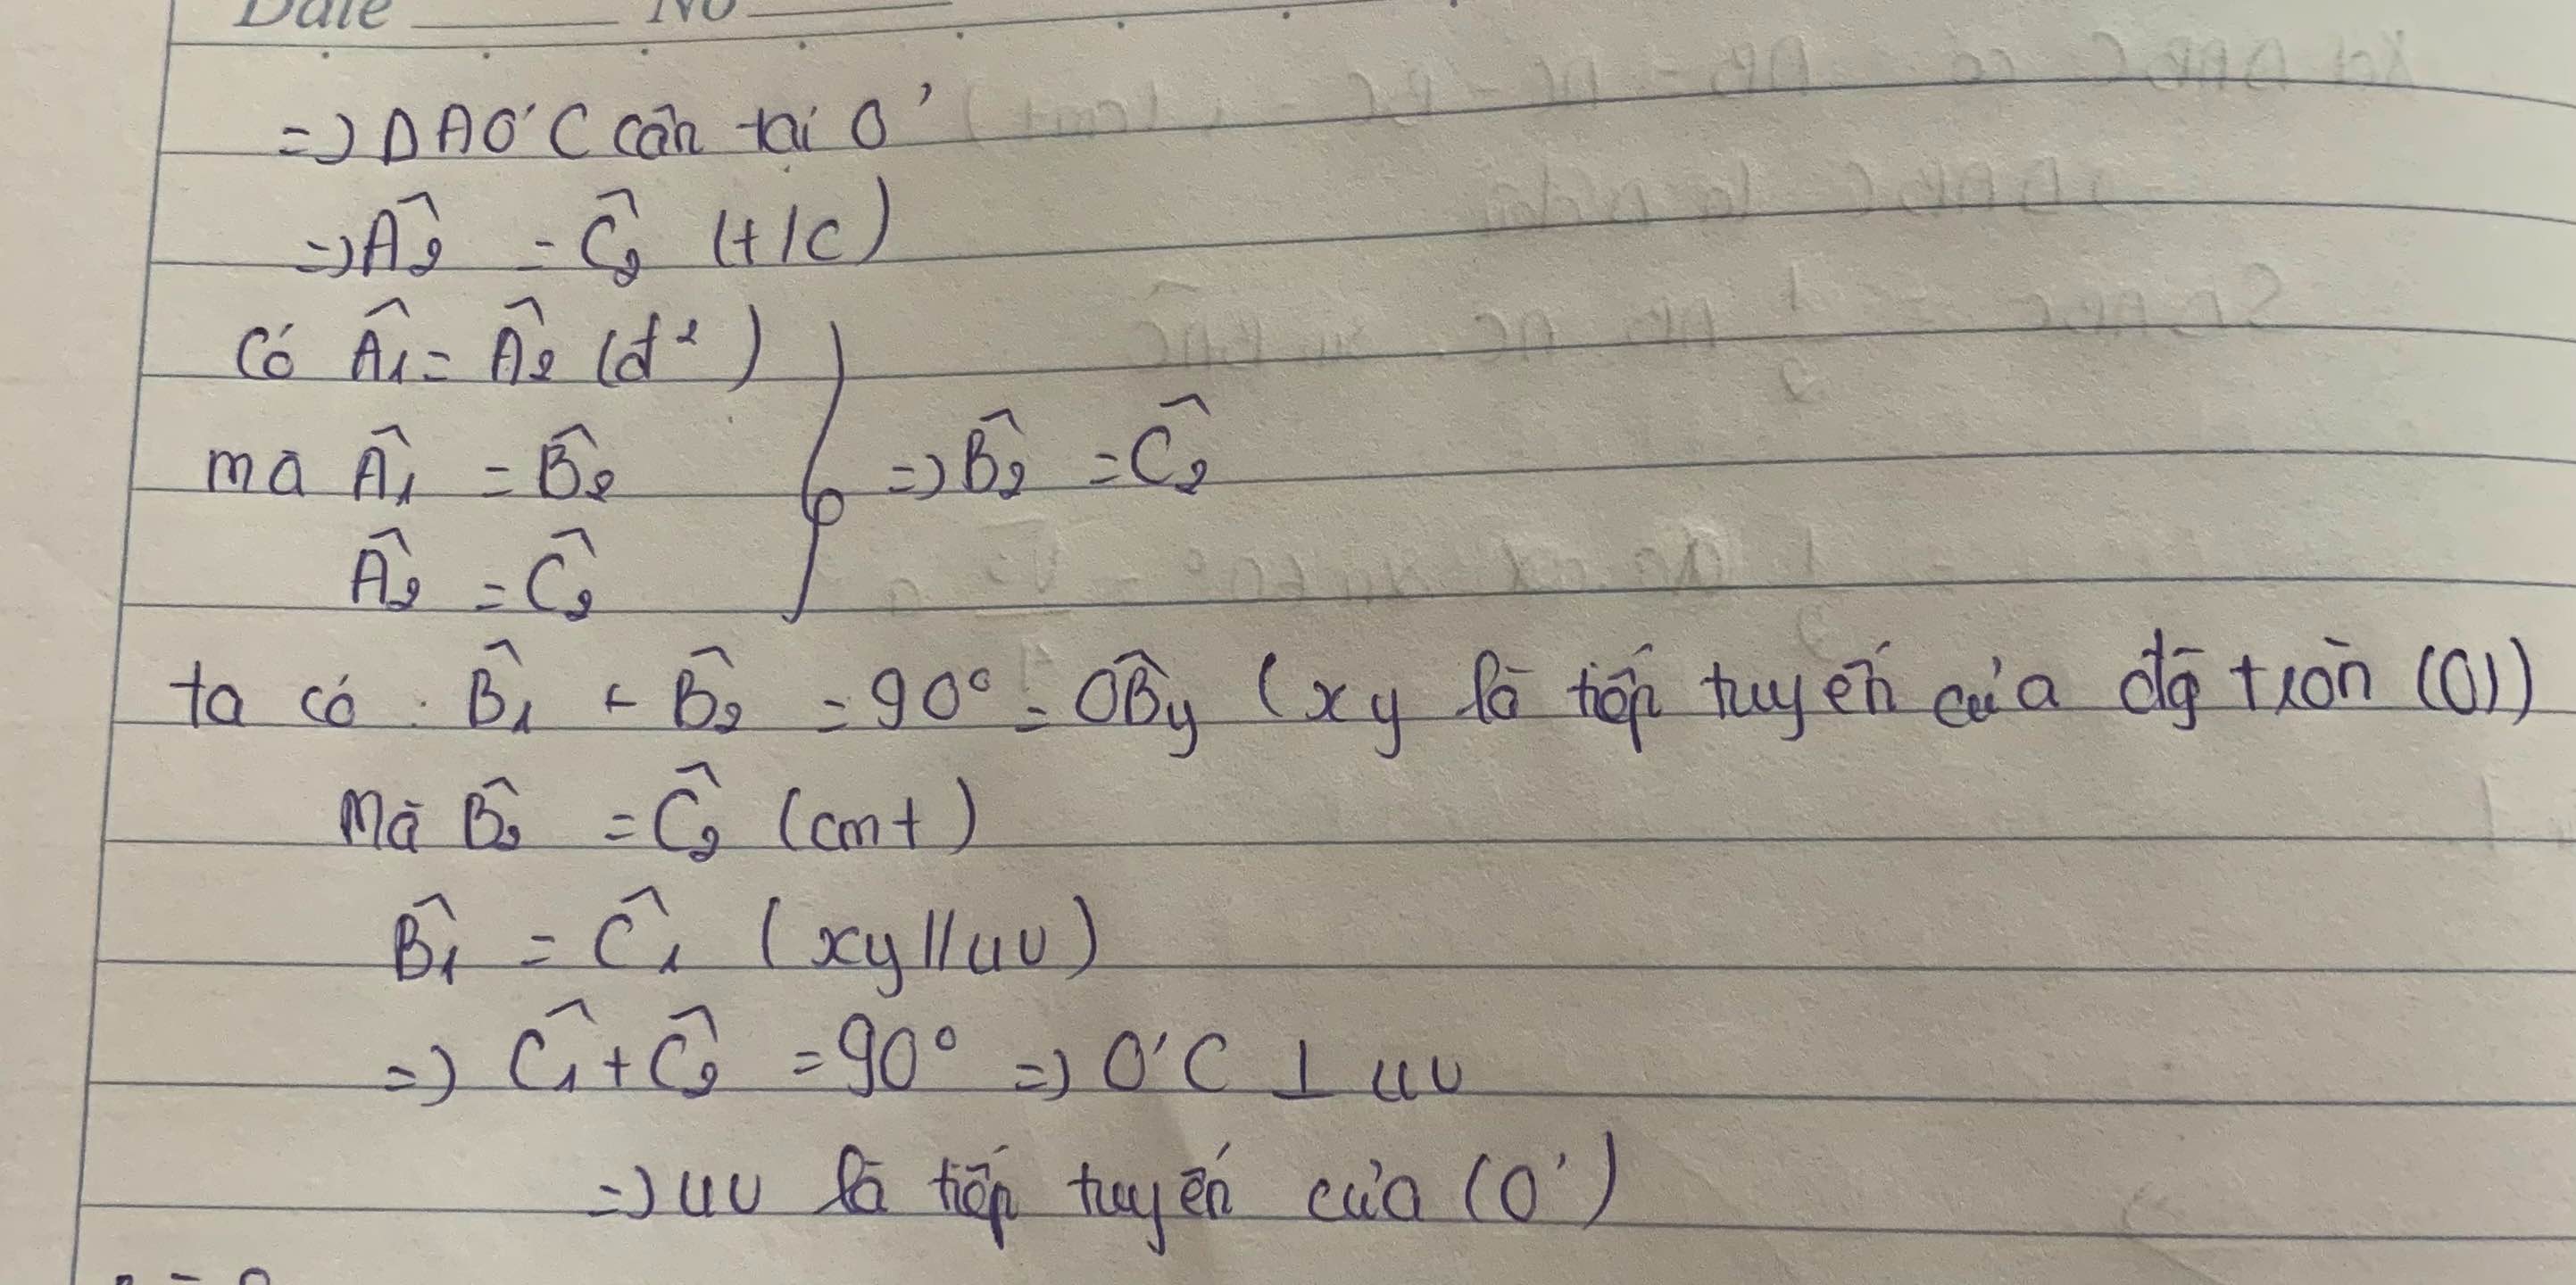 Date No
=> ΔAO'C cân tại O'
=> Â₂ = Ĉ₂ (t/c)
Có Â₁ = Â₂ (đ²)
mà Â₁ = B̂₂ => B̂₂ = Ĉ₂
Â₂ = Ĉ₂
ta có : B̂₁ + B̂₂ = 90° = OB̂y (xy là tiếp tuyến của đg tròn (O))
Mà B̂₂ = Ĉ₂ (cmt)
B̂₁ = Ĉ₁ (xy // uv)
=> Ĉ₁ + Ĉ₂ = 90° => O'C ⊥ uv
=> uv là tiếp tuyến của (O')